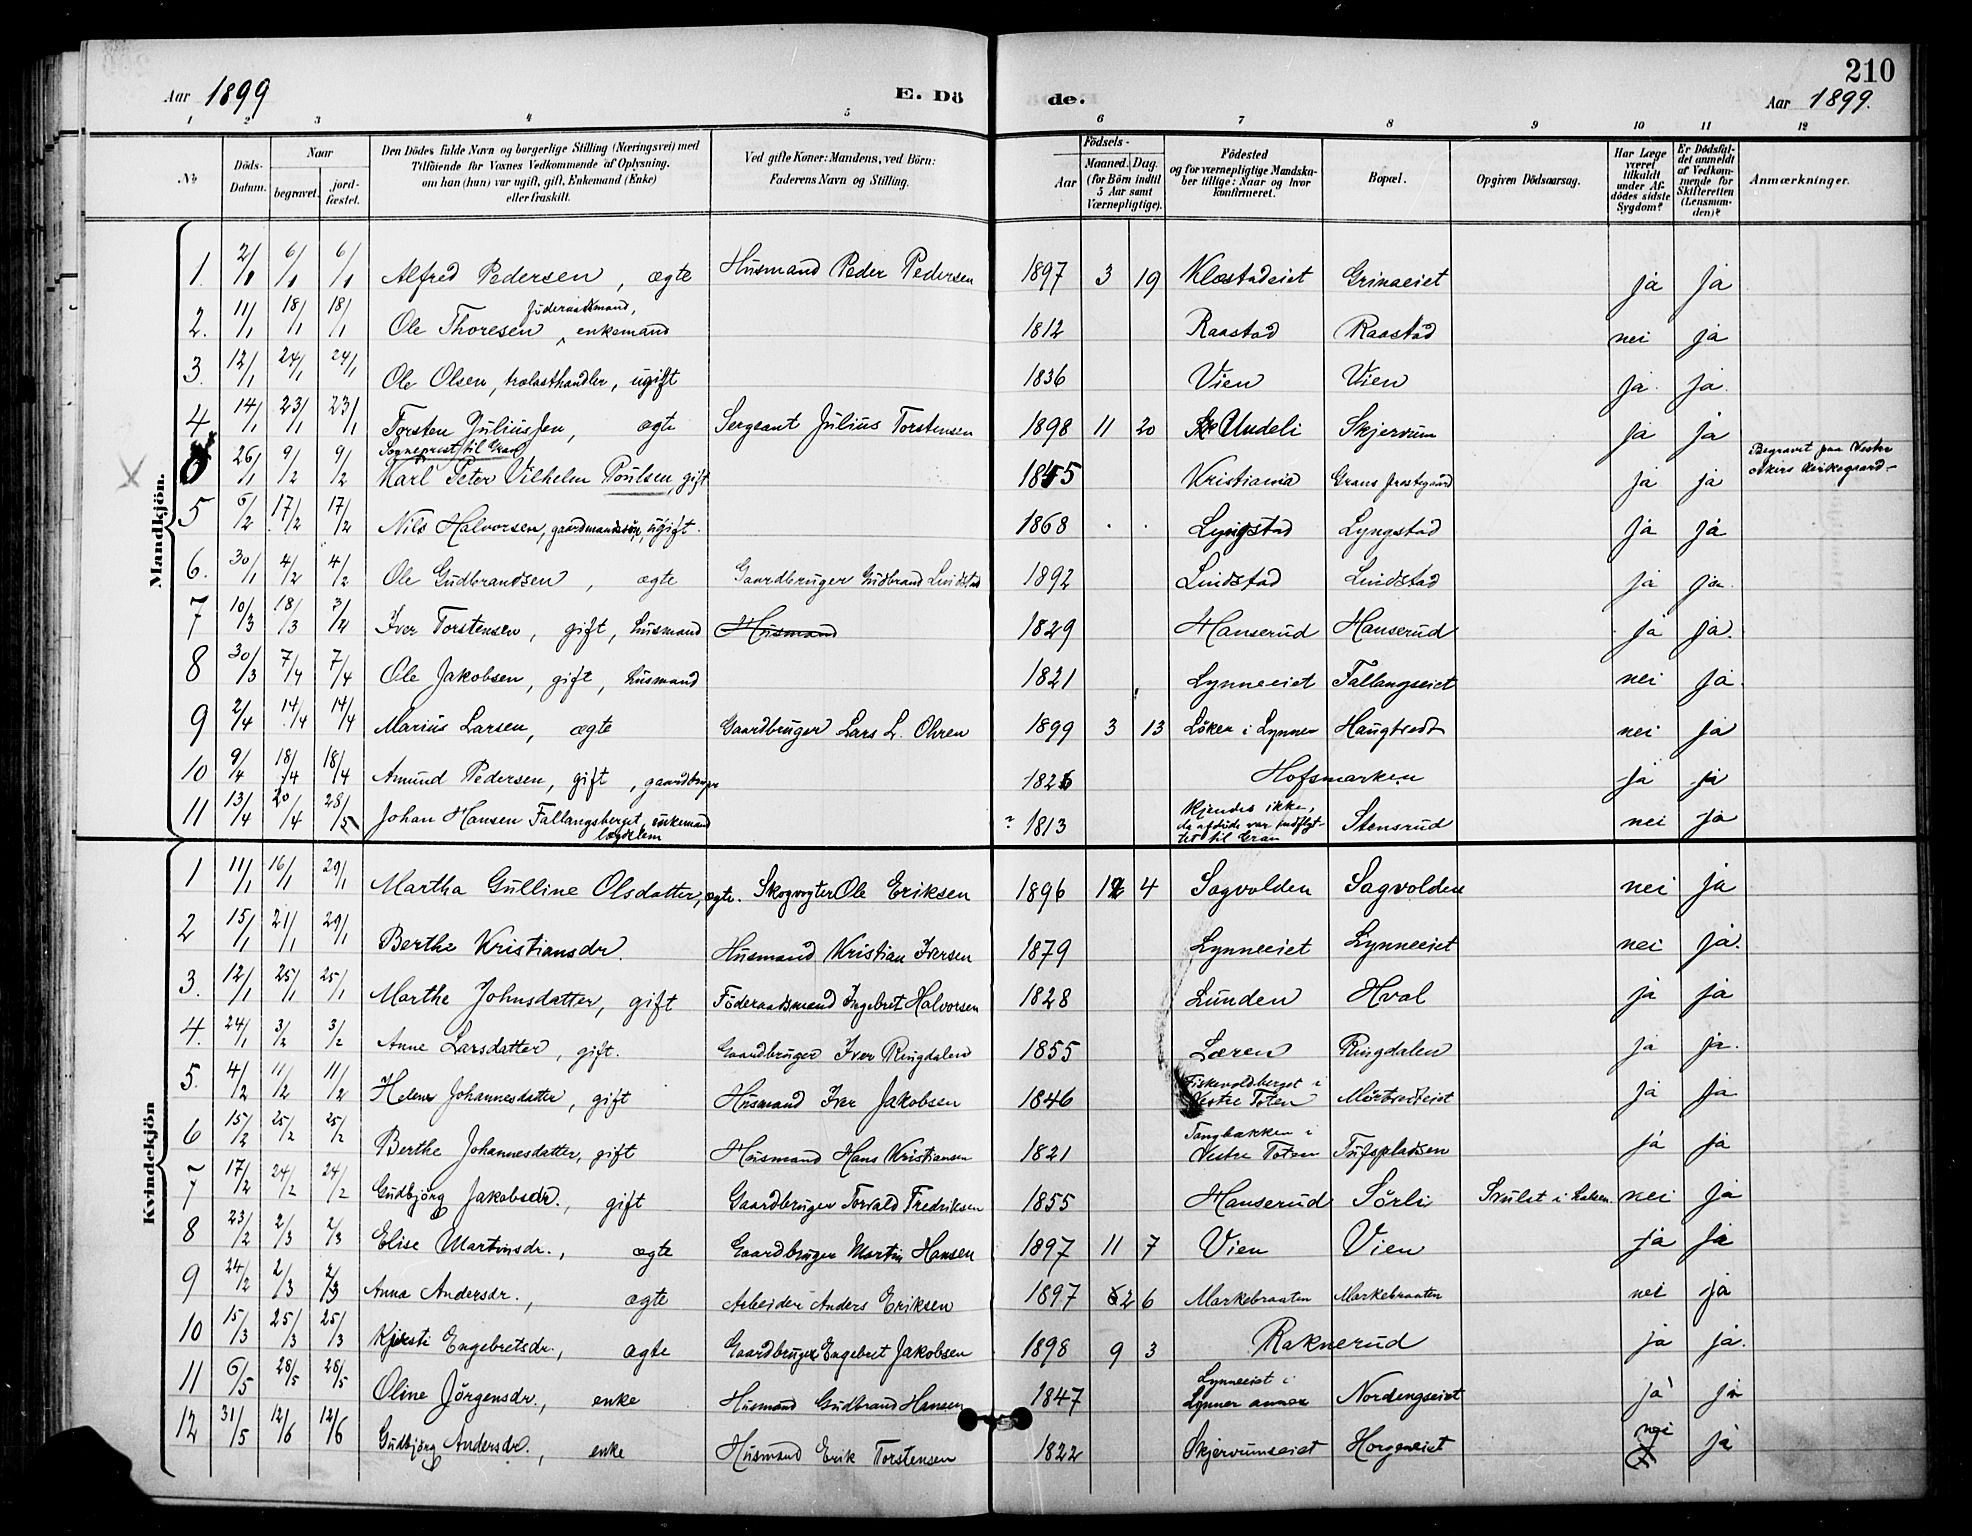 210
Aar 1899 E. Dö de. Aar 1899.
1 2 3 4 5 6 7 8 9 10 11 12
No Döds-Datum. Naar begravet. jordfæstet. Den Dödes fulde Navn og borgerlige Stilling (Næringsvei) med Tilföiende for Voxnes Vedkommende af Oplysning, om han (hun) var ugift, gift, Enkemand (Enke) eller fraskilt. Ved gifte Koner: Mandens, ved Börn: Faderens Navn og Stilling. Födsels- Aar Maaned. Dag. (for Börn indtil 5 Aar samt Værnepligtige). Födested og for værnepligtige Mandskaber tillige: Naar og hvor konfirmeret. Bopæl. Opgiven Dödsaarsag. Har Læge været tilkaldt under Afdödes sidste Sygdom? Er Dödsfaldet anmeldt af Vedkommende for Skifteretten (Lensmanden)? Anmærkninger.
Mandkjön.
1. 2/1 6/1 6/1 Alfred Pedersen, ægte Husmand Peder Pedersen 1897 3 19 Klæstadeiet Grinaeiet ja ja
2. 11/1 18/1 18/1 Ole Thoresen, föderaadsmand, enkemand 1812 Raastad Raastad nei ja
3. 12/1 24/1 24/1 Ole Olsen, trælasthandler, ugift 1836 Vien Vien ja. ja.
4 14/1 23/1 23/1 Torsten Juliussen, ægte Sergeant Julius Torstensen 1898 11 20 Undeli Skjervum ja ja
X 0 26/1 9/2 9/2 Sogneprest til Gran Karl Peter Vilhelm Poulsen, gift 1845 Kristiania Grans prestegaard ja ja Begravet paa Vestre Akers kirkegaard-
5 6/2 17/2 17/2 Nils Halvorsen, gaardmandssön, ugift. 1868 Lyngstad Lyngstad ja ja
6. 30/1 4/2 4/2 Ole Gudbrandsen, ægte Gaardbruger Gudbrand Lindstad 1892 Lindstad Lindstad ja ja.
7 10/3 18/3 3/4 Iver Torstensen, gift, husmand Husmand 1829 Hanserud Hanserud ja ja.
8 30/3 7/4 7/4 Ole Jakobsen, gift, husmand 1821 Lynneeiet Fallangseiet nei ja.
9 2/4 14/4 14/4 Marius Larsen, ægte Gaardbruger Lars L. Ohren 1899 3 13 Löken i Lynner Haugtvedt nei ja
10 9/4 18/4 18/4 Amund Pedersen, gift, gaardbruger 1826 Hofsmarken ja ja
11 13/4 20/4 28/5 Johan Hansen Fallangsberget, enkemand lægdelem ? 1813 Kjendes ikke, da afdöde var indflyttet til Gran Stensrud nei ja
Kvindekjön
1 11/1 16/1 29/1 Martha Gulline Olsdatter, ægte. Skogvogter Ole Eriksen 1896 12 4 Sagvolden Sagvolden nei ja
2 15/1 21/1 29/1 Berthe Kristiansdr. Husmand Kristian Iversen 1879 Lynneeiet Lynneeiet nei ja.
3. 12/1 25/1 25/1 Marthe Johnsdatter, gift Föderaadsmand Ingebret Halvorsen 1828 Lunden Hval ja ja
4. 24/1 3/2 3/2 Anne Larsdatter, gift. Gaardbruger Iver Ringdalen 1855 Læren Ringdalen ja ja.
5. 4/2 11/2 11/2 Helene Johannesdatter, gift Husmand Iver Jakobsen 1846 Fiskevoldberget i Vestre Toten Mörtvedteiet ja ja
6 15/2 25/2 25/2 Berthe Johannesdatter, gift Husmand Hans Kristiansen 1821 Tangbakken i Vestre Toten Tufspladsen ja ja
7 17/2 24/2 24/2 Gudbjörg Jakobsdr., gift Gaardbruger Torvald Fredriksen 1855 Hanserud Sörli Svulst i halsen. nei ja
8 23/2 2/3 2/3 Elise Martinsdr., ægte Gaardbruger Martin Hansen 1897 11 7 Vien Vien ja ja
9 24/2 2/3 2/3 Anna Andersdr., ægte Arbeider Anders Eriksen 1897 2 6 Markebraaten Markebraaten nei ja
10 15/3 25/3 25/3 Kjersti Engebretsdr., ægte Gaardbruger Engebret Jakobsen 1898 9 3 Raknerud ja ja.
11 6/5 28/5 28/5 Oline Jörgensdr., enke Husmand Gudbrand Hansen 1847 Lynneeiet i Lynner annex Nordengseiet ja ja
12 31/5 12/6 12/6 Gudbjörg Andersdr., enke Husmand Erik Torstensen 1822 Skjervumseiet Horgeneiet nei ja